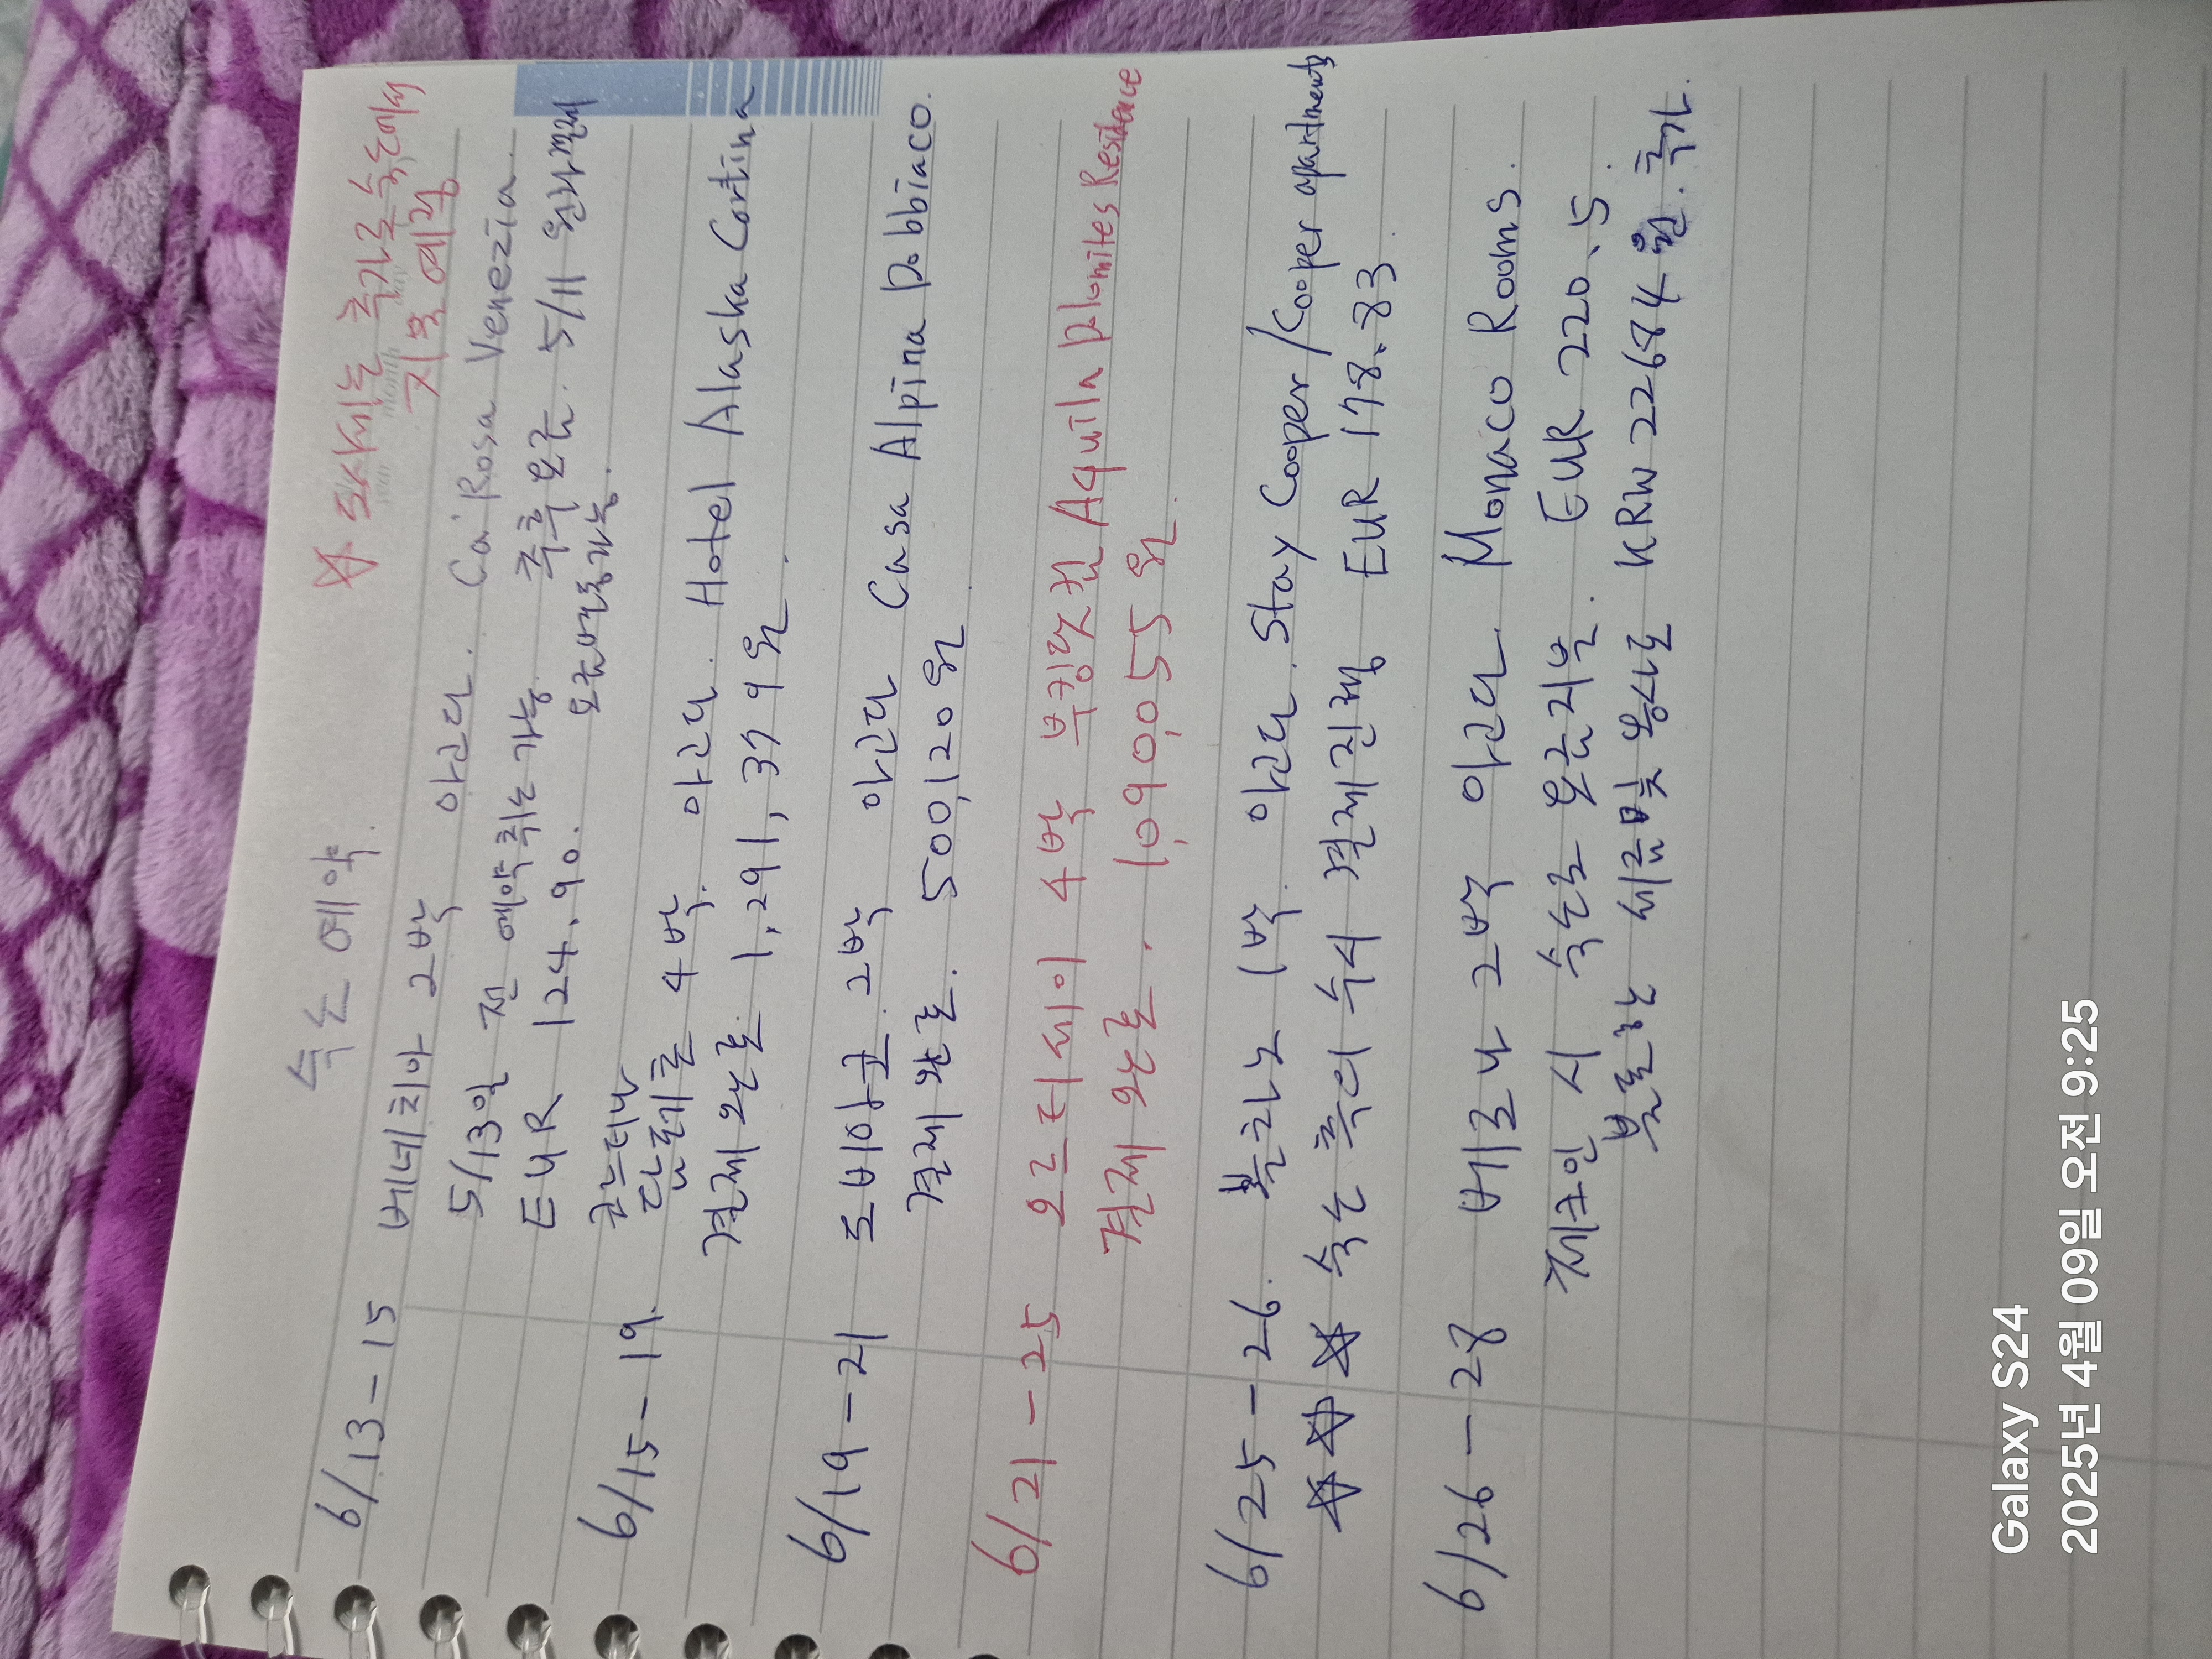 숙소 예약.
☆ 도시세는 추가로 숙소에서
지불 예정
6/13-15 베네치아 2박 아고다. Ca' Rosa Venezia.
5/13일 전 예약 취소 가능. 추후 요금. 5/11 원화결제
EUR 124.90. 요금변동가능.
6/15-19. 코르티나
담페초 4박. 아고다. Hotel Alaska Cortina
결제 완료. 1,291,379원.
6/19-21 도비아코 2박 아고다 Casa Alpina Dobbiaco.
결제 완료. 500,120원.
6/21-25 오르티세이 4박 부킹닷컴 Aquila Dolomites Residence
결제 완료. 1,090,055원.
6/25-26. 볼차노 1박. 아고다. Stay Cooper/Cooper apartments
☆☆☆ 숙소 측의 수시 결제진행 EUR 178.83.
6/26-28 베로나 2박 아고다. Monaco Rooms.
체크인 시 숙소로 요금지불. EUR 220.5.
불포함 세금 및 봉사료 KRW 22684원. 추가.
Galaxy S24
2025년 4월 09일 오전 9:25